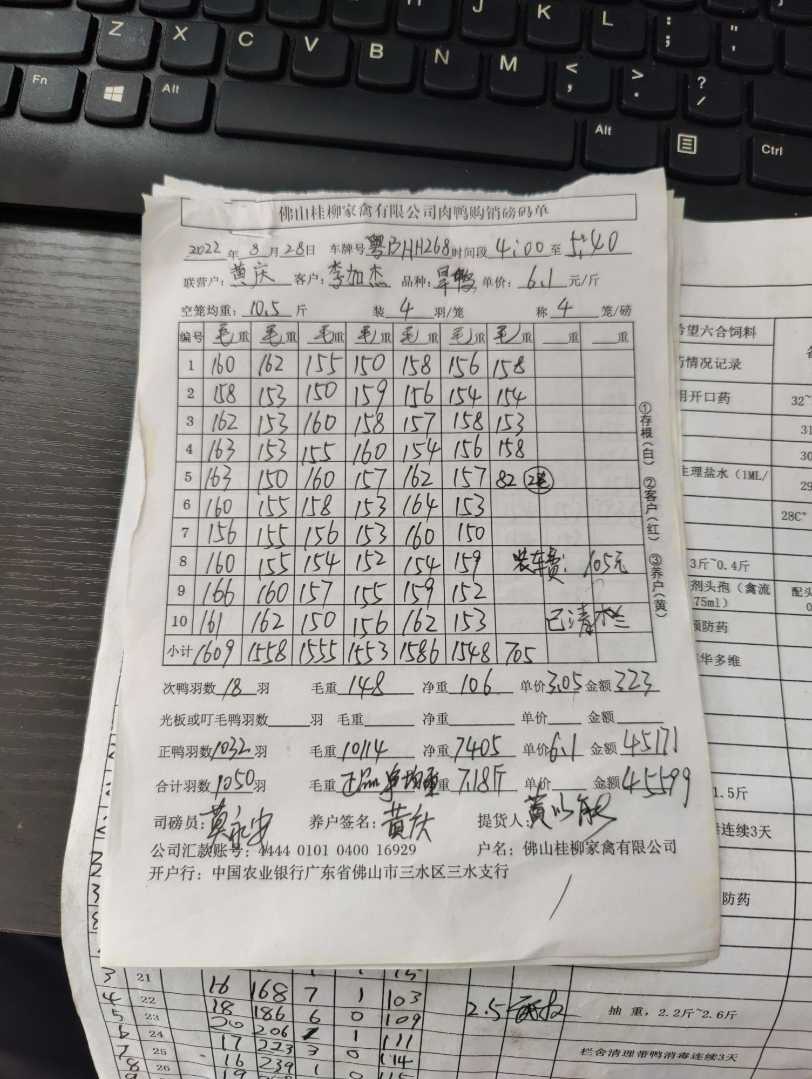 Z X C V B N M < , > . ? /
Fn Alt Alt Ctrl
佛山桂柳家禽有限公司肉鸭购销磅码单
2022 年 8 月 28 日 车牌号 粤BHH268 时间段 4:00 至 5:40
联营户: 黄庆 客户: 李加杰 品种: 旱鸭 单价: 6.1 元/斤
空笼均重: 10.5 斤 装 4 羽/笼 称 4 笼/磅
编号 毛重 毛重 毛重 毛重 毛重 毛重 毛重 重 重
1 160 162 155 150 158 156 158
2 158 153 150 159 156 154 154
3 162 153 160 158 157 158 153
4 163 153 155 160 154 156 158
5 163 150 160 157 162 157 82
6 160 155 158 153 164 153
7 156 155 156 153 160 150
8 160 155 154 152 154 159 装车费: 105元
9 166 160 157 155 159 152
10 161 162 150 156 162 153 已清栏
小计 1609 1558 1555 1553 1586 1548 705
①存根(白) ②客户(红) ③养户(黄)
次鸭羽数 18 羽 毛重 148 净重 106 单价 3.05 金额 323
光板或叮毛鸭羽数 羽 毛重 净重 单价 金额
正鸭羽数 1032 羽 毛重 10114 净重 7405 单价 6.1 金额 45171
合计羽数 1050 羽 毛重 正品净均重 7.18斤 单价 金额 45599
司磅员: 莫永安 养户签名: 黄庆 提货人:
公司汇款账号: 4444 0101 0400 16929 户名: 佛山桂柳家禽有限公司
开户行: 中国农业银行广东省佛山市三水区三水支行
希望六合饲料
药情况记录
用开口药 32~
31
30
生理盐水(1ML/ 29
28C°
3斤~0.4斤
剂头孢(禽流 配头
75ml)
预防药
华多维
1.5斤
毒连续3天
防药
3 21
4 22 16 168 7 1 103
5 23 18 186 6 0 109 2.5 抽 重, 2.2斤~2.6斤
6 24 20 206 2 1 111
7 25 17 223 3 0 114 栏舍清理带鸭消毒连续3天
8 26 16 239 1 0 115